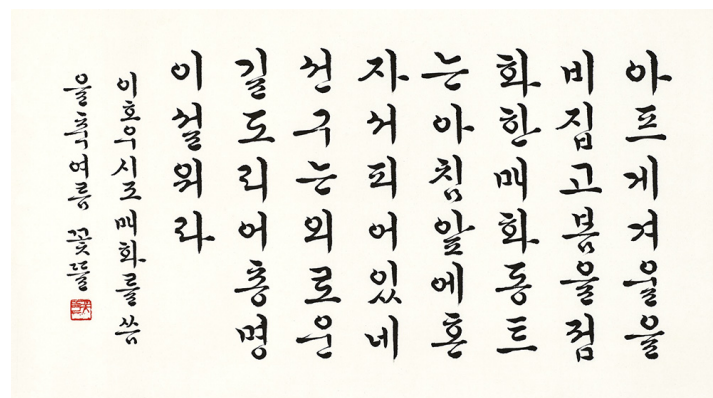 아프게겨울을
비집고봄을점
화한매화동트
는아침앞에혼
자서피어있네
선구는외로운
길도리어총명
이설워라
이호우시조 매화를 씀
을축여름 꽃뜰